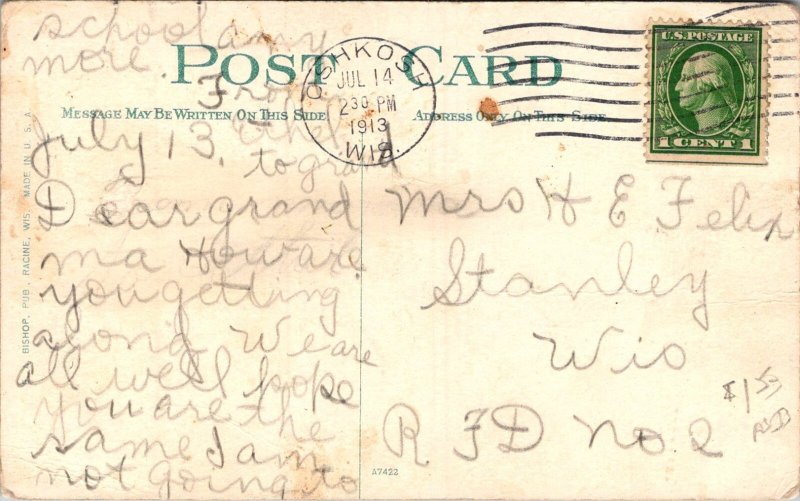 school any
more.
From
Ethel
to grand
POST CARD
MESSAGE MAY BE WRITTEN ON THIS SIDE
ADDRESS ONLY ON THIS SIDE
OSHKOSH
JUL 14
2 30 PM
1913
WIS.
U.S. POSTAGE
1 CENT 1
July 13,
Dear grand
ma How are
you getting
along. We are
all well hope
you are the
same I am
not going to
Mrs H E Felix
Stanley
Wis
R F D No 2
$1
A7422
BISHOP, PUB., RACINE, WIS. MADE IN U.S.A.